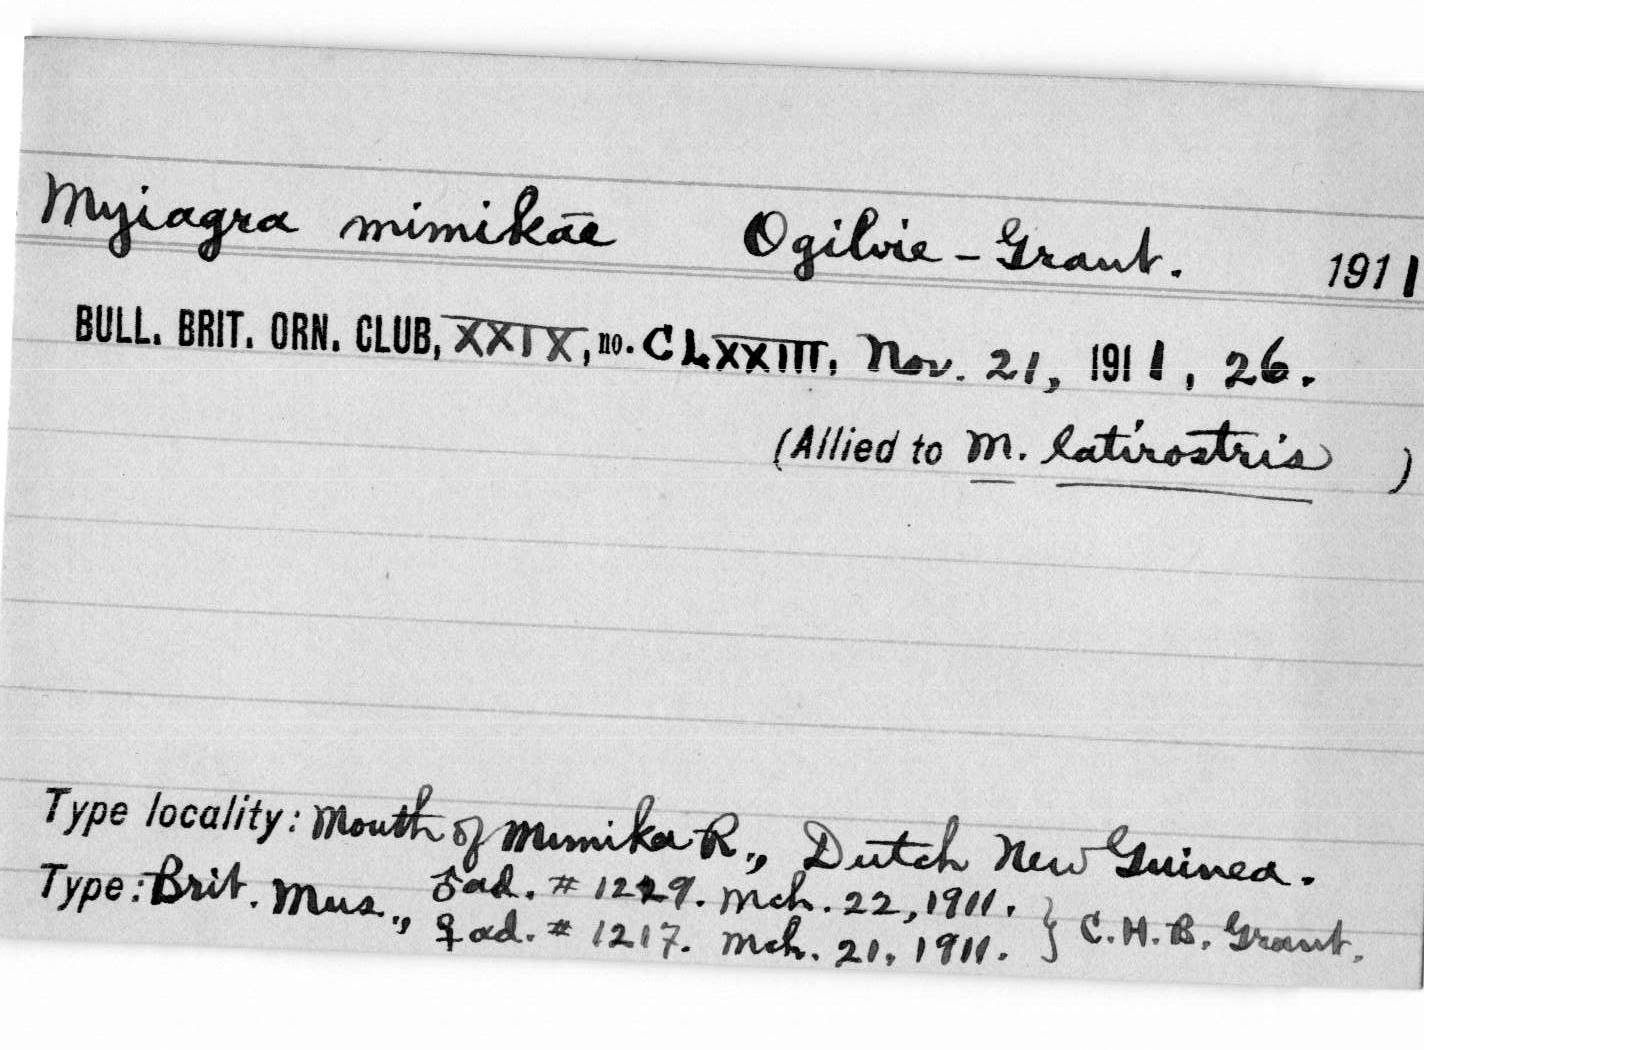 Myiagra mimikæ Ogilvie-Grant. 1911
BULL. BRIT. ORN. CLUB, XXIX, no. CLXXIII, Nov. 21, 1911, 26.
(Allied to M. latirostris )
Type locality: Mouth of Mimika R., Dutch New Guinea.
Type: Brit. Mus., ♂ ad. # 1229. Mch. 22, 1911.
♀ ad. # 1217. Mch. 21, 1911. } C.H.B. Grant.